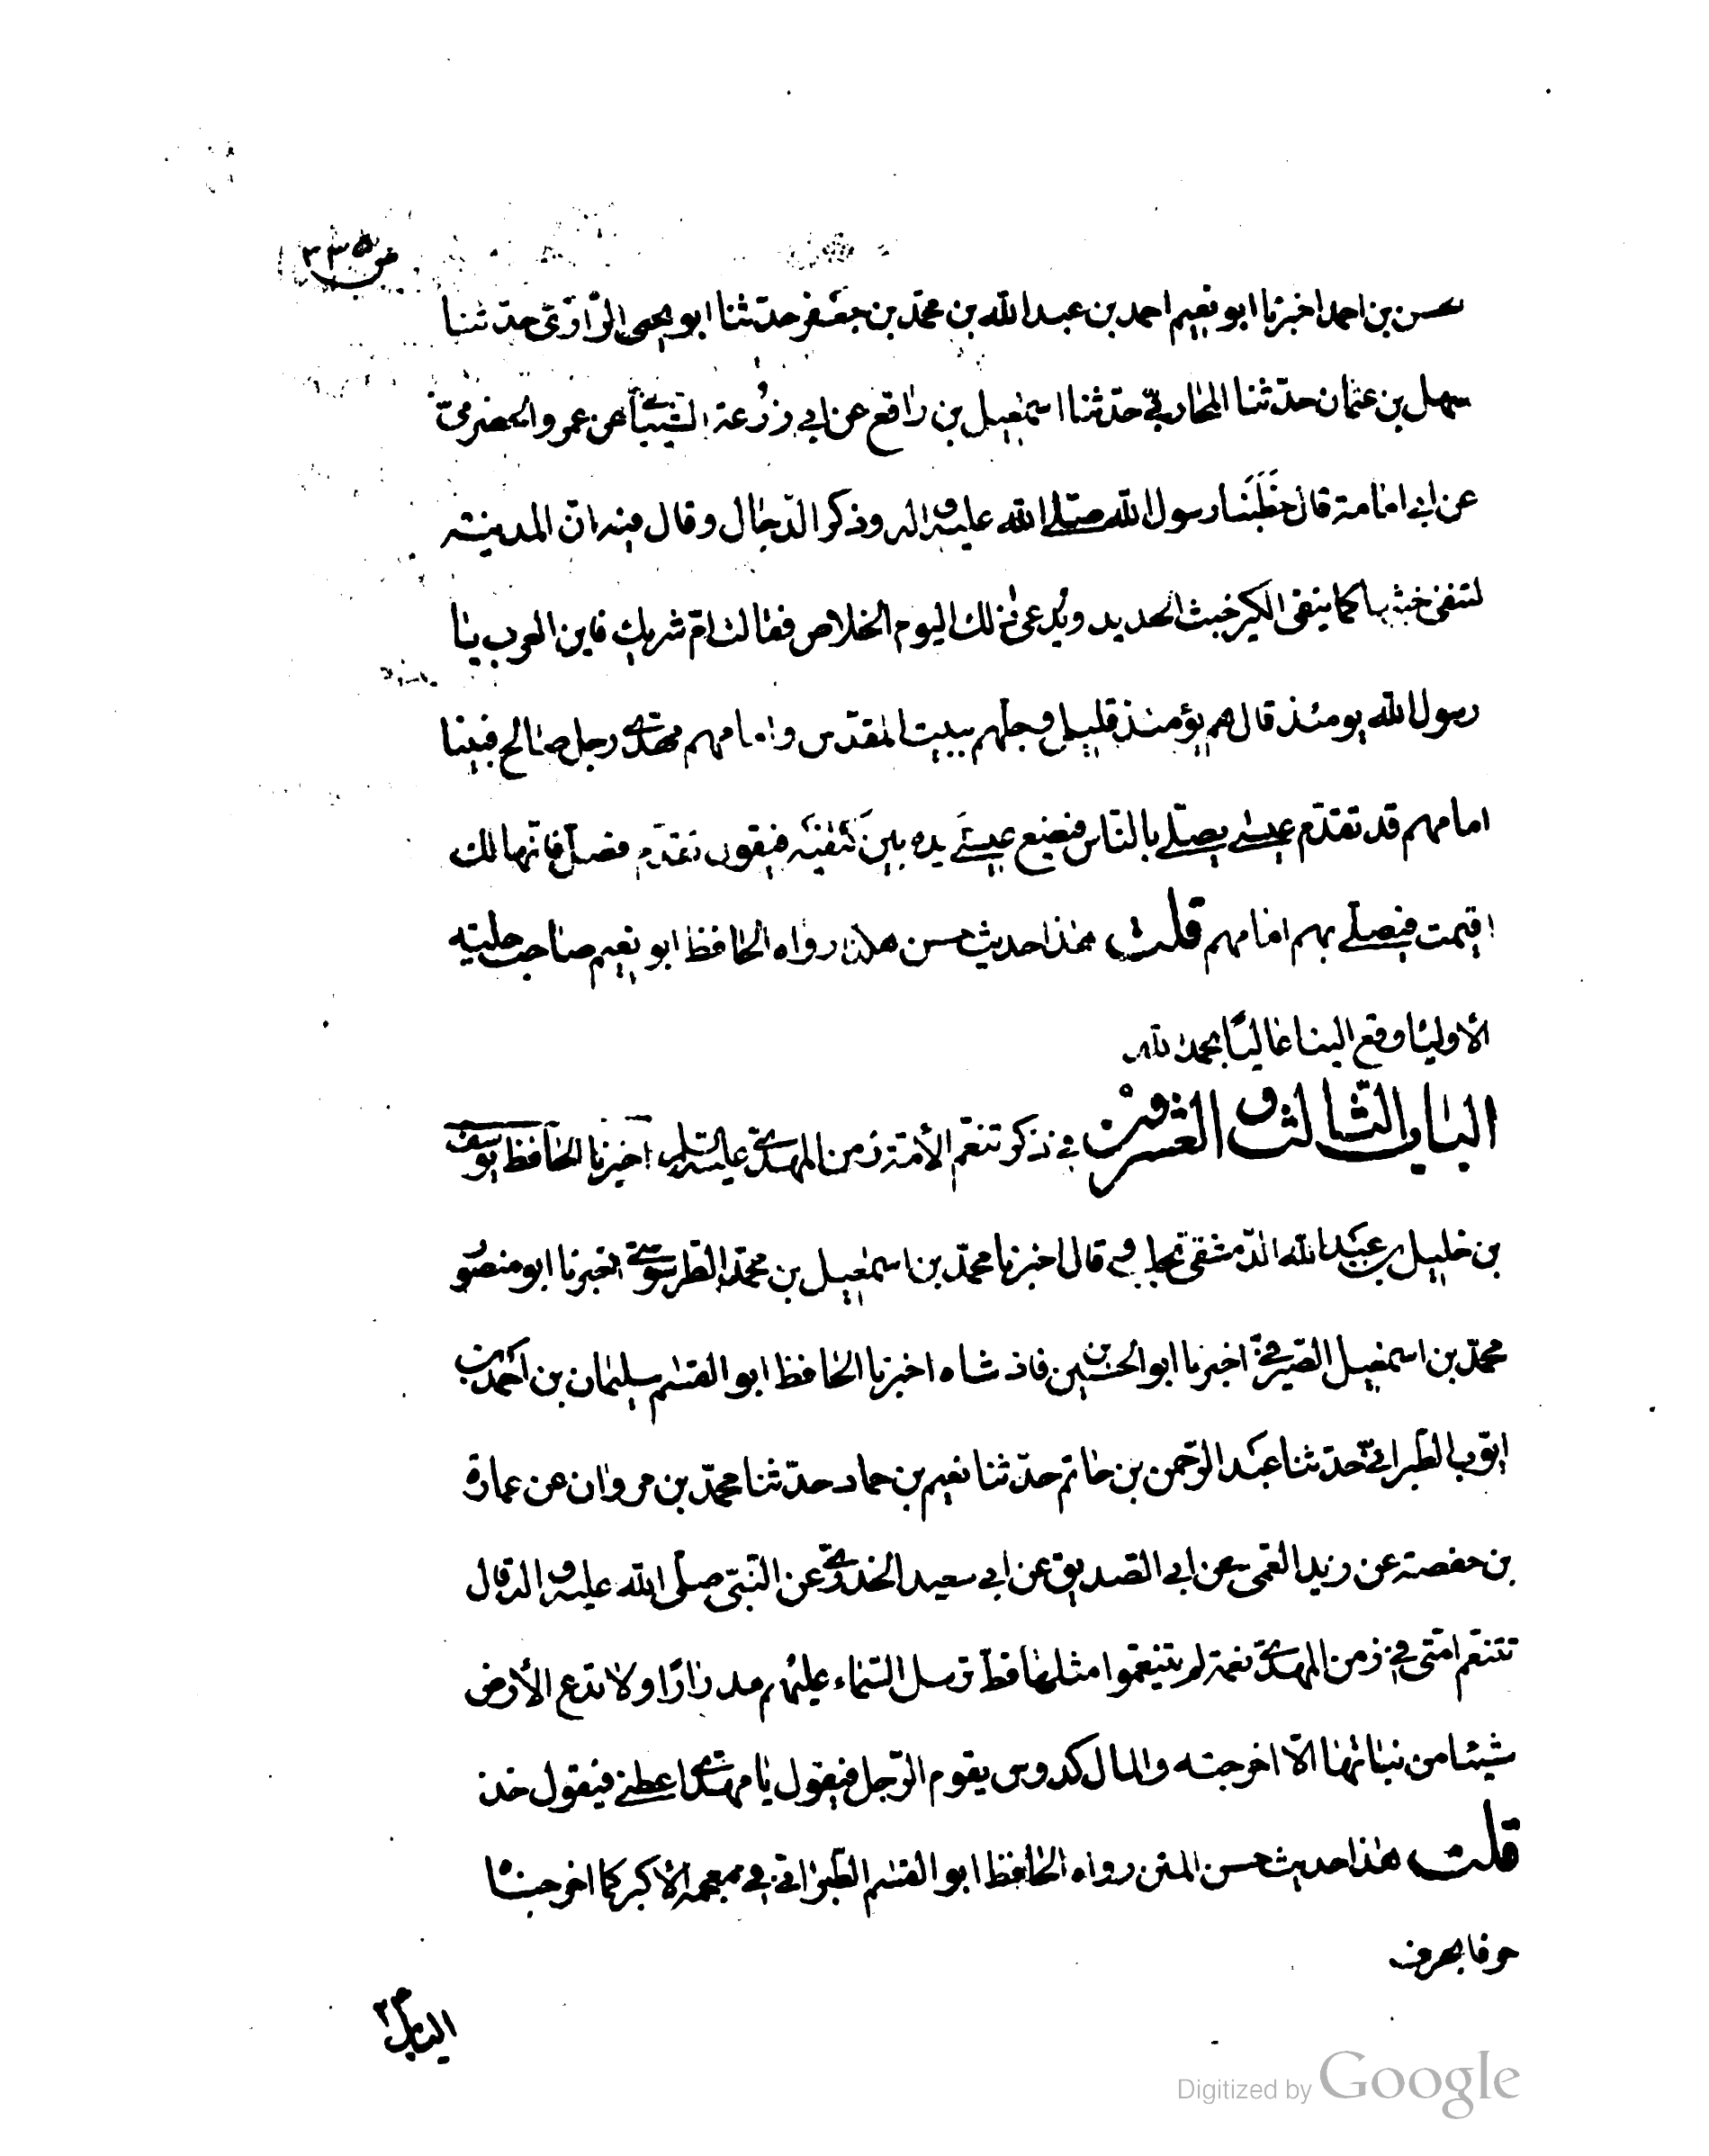 ص ٣٣٥
حسن بن احمد اخبرنا ابو نعيم احمد بن عبد الله بن محمّد بن جعفر حدّثنا ابو يحيى الرّازىّ حدّثنا
سهل بن عثمان حدّثنا المحاربىّ حدّثنا اسمعيل بن رافع عن ابى زُرعة الشيبانى عن عمرو الحضرمىّ
عن ابى امامة قال خطَبَنا رسول الله صلّى الله عليه واله وذكر الدّجال وقال فيه انّ المدينة
لتنفى خبثها كما ينفى الكير خبث الحديد ويُدعى ذلك اليوم الخلاص فقالت امّ شريك فاين العرب يا
رسول الله يومئذ قال هم يؤمئذ قليل وجلّهم ببيت المقدّس وامامهم مهدىّ رجل صالح فبينا
امامهم قد تقدّم عيسى يصلّى بالنّاس فيضع عيسى يده بين كتفيه فيقول تقدّم فصلّ فانّها لك
اقيمت فيصلّى بهم امامهم قلت هذا حديث حسن هكذا رواه الحافظ ابو نعيم صاحب حلية
الأوليا وقع الينا عاليًا بحمد لله
الباب الثّالث والعشرون فى ذكر تنعّم الأمّة زمن المهدىّ عليه السّلم اخبرنا الحافظ يوسف
بن خليل بن عبد الله الدّمشقى بحلب قال اخبرنا محمّد بن اسمعيل بن محمّد الطرسوسىّ اخبرنا ابو منصو
محمّد بن اسمعيل الصّيرفىّ اخبرنا ابو الحسين بن فاذشاه اخبرنا الحافظ ابو القسم سليمان بن احمد بن
ايّوب الطّبرانىّ حدّثنا عبد الرّحمن بن حاتم حدّثنا نعيم بن حماد حدّثنا محمّد بن مروان عن عمارة
بن حفصة عن زيد العمى عن ابى الصديق عن ابى سعيد الخدرىّ عن النّبىّ صلّى الله عليه واله قال
تتنعّم امّتى فى زمن المهدىّ نعمة لم يتنعّموا مثلها قطّ ترسل السّماء عليهم مدرارًا ولا تدع الأرض
شيئا من نباتها الّا اخرجته والمال كدوس يقوم الرّجل فيقول يا مهدىّ اعطنى فيقول خذ
قلت هذا حديث حسن المتن رواه الحافظ ابو القسم الطّبرانى فى معجمه الأكبر كما اخرجناه
حرفا بحرف
الباب ٢٣
Digitized by Google